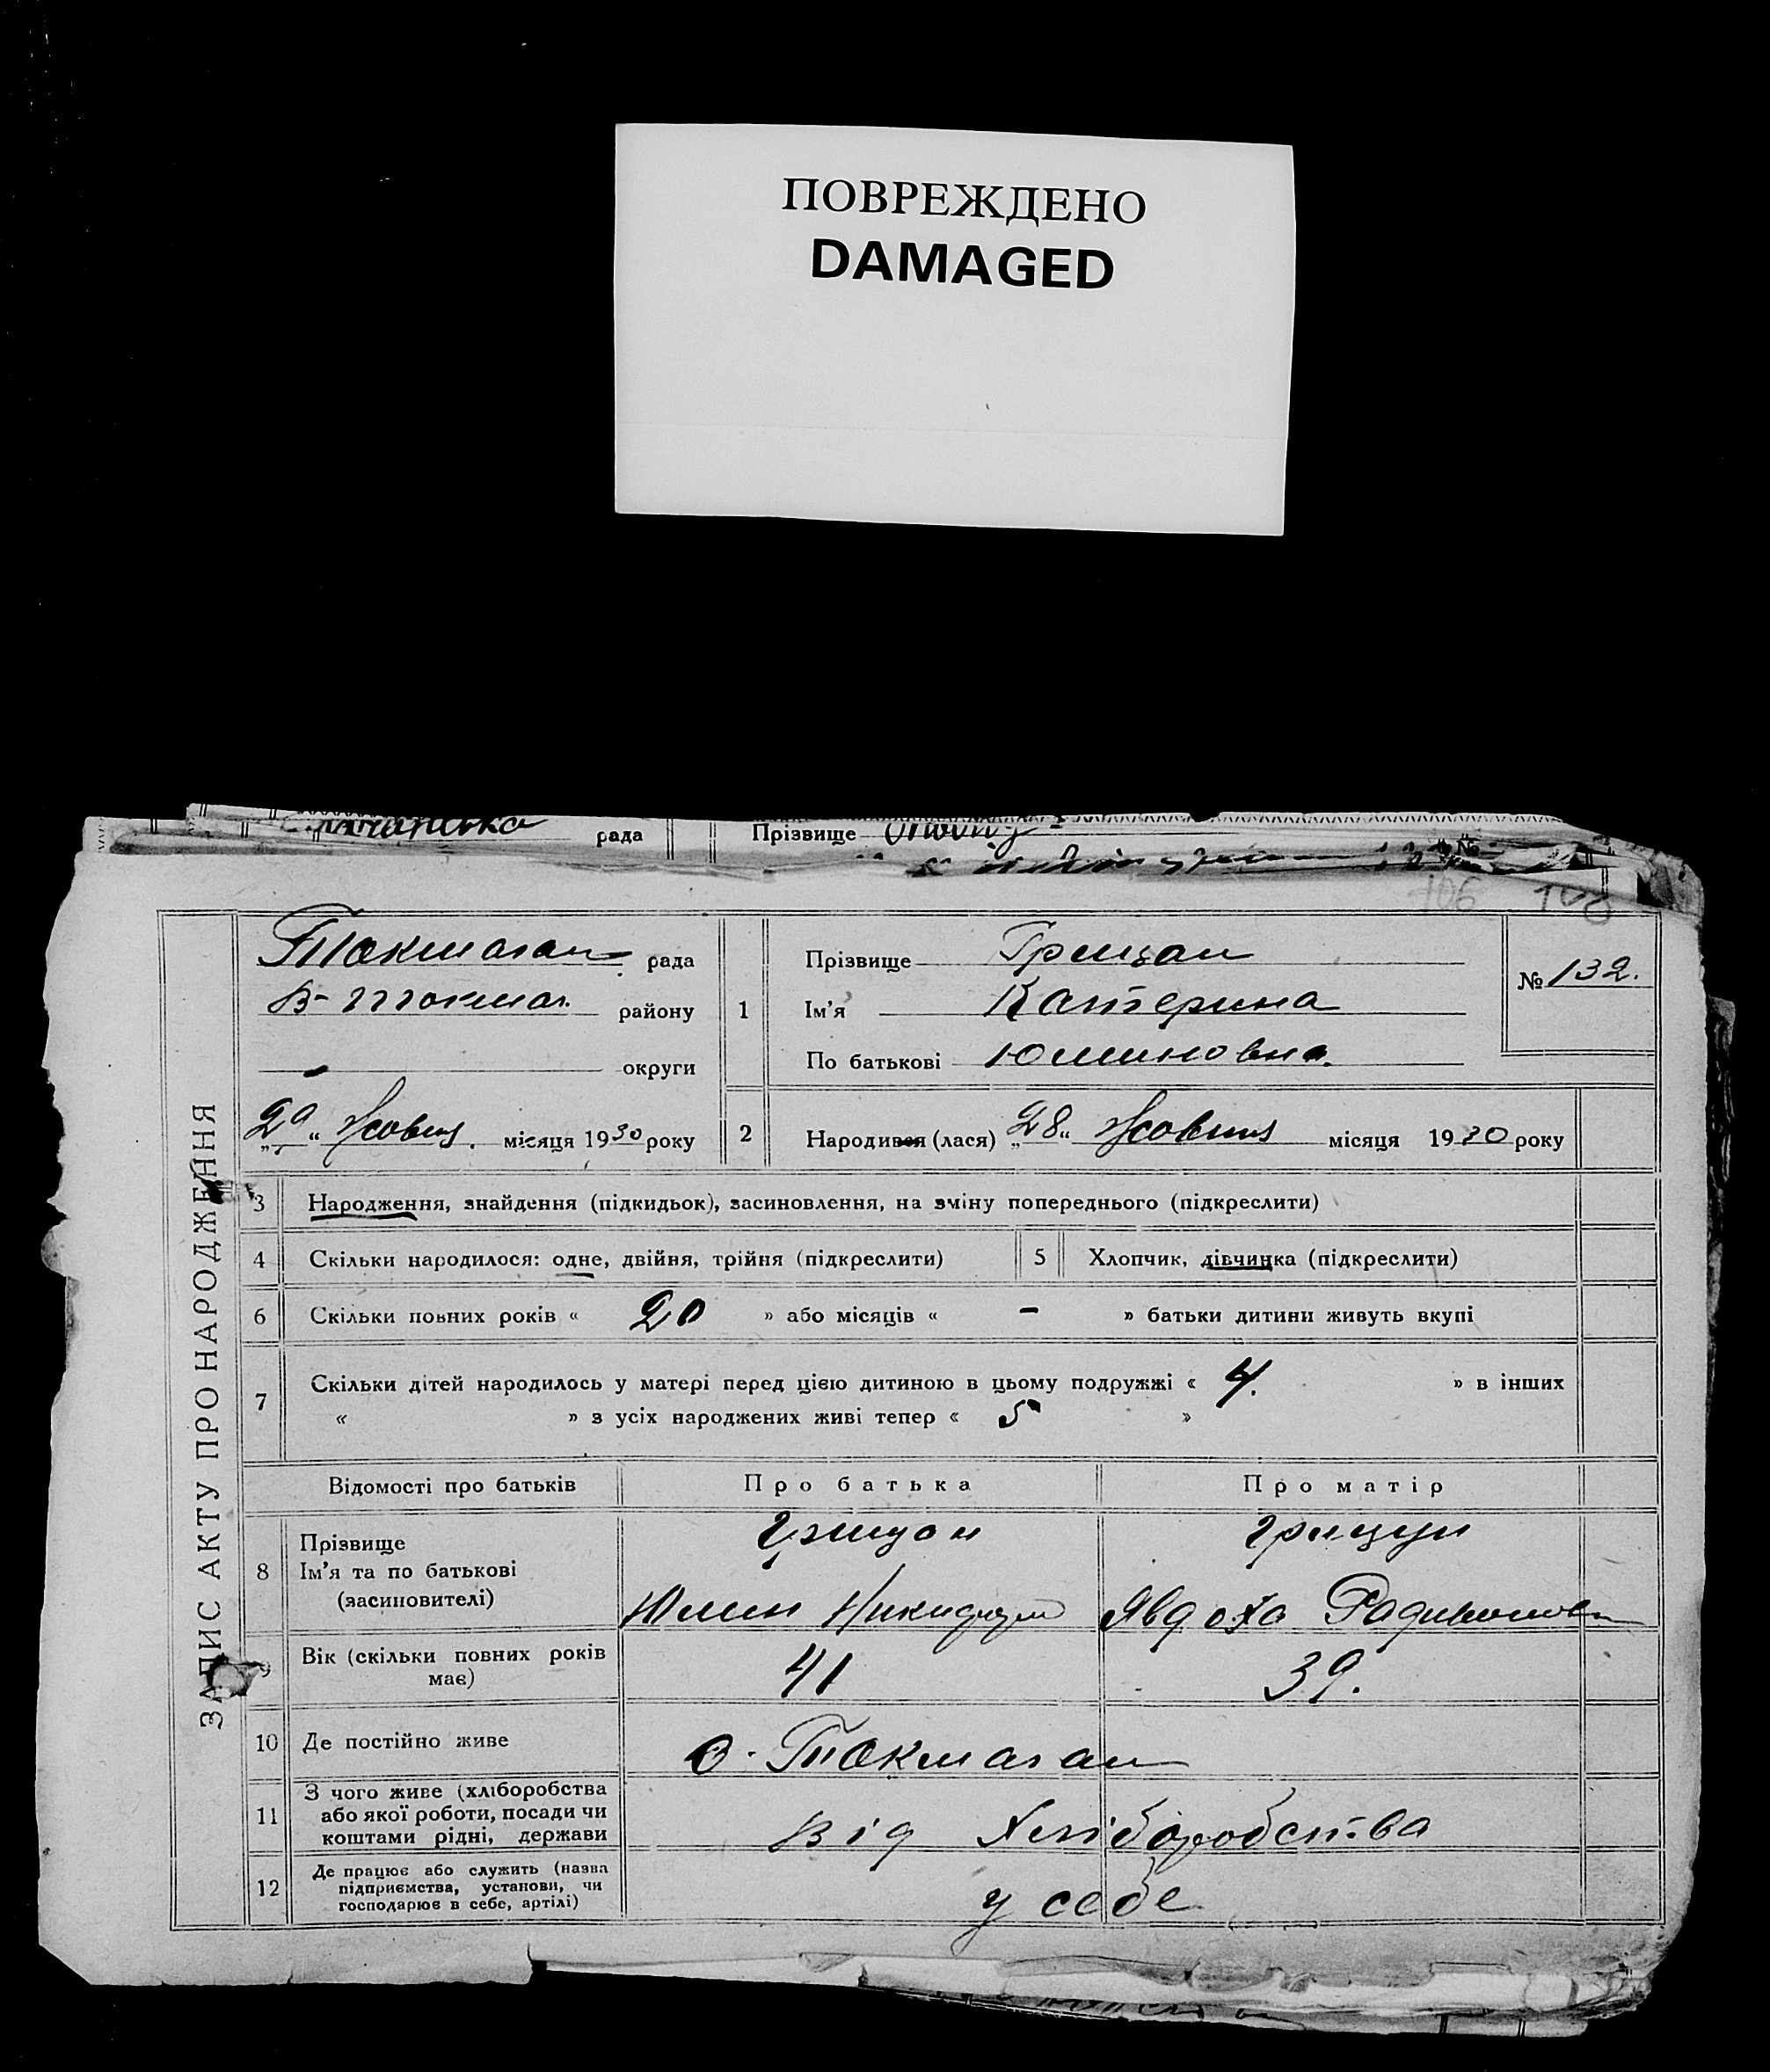 ПОВРЕЖДЕНО
DAMAGED
рада Прізвище
№
106
ЗАПИС АКТУ ПРО НАРОДЖЕННЯ
Токмачан рада
В-Токмач. району
— округи
„29“ Жовтн. місяця 1930 року
1
Прізвище Грицан
Ім'я Катерина
По батькові Юминовна.
№ 132.
2 Народився (лася) „28“ Жовтня місяця 1930 року
3 Народження, знайдення (підкидьок), засиновлення, на зміну попереднього (підкреслити)
4 Скільки народилося: одне, двійня, трійня (підкреслити) 5 Хлопчик, дівчинка (підкреслити)
6 Скільки повних років « 20 » або місяців « - » батьки дитини живуть вкупі
7 Скільки дітей народилось у матері перед цією дитиною в цьому подружжі « 4. » в інших
« » з усіх народжених живі тепер « 5 »
Відомості про батьків Про батька Про матір
8 Прізвище
Ім'я та по батькові
(засиновителі)
Грицан
Юмин
Явдоха
9 Вік (скільки повних років
має)
41 39.
10 Де постійно живе с. Токмачан
11 З чого живе (хліборобства
або якої роботи, посади чи
коштами рідні, держави
від Хліборобства
12 Де працює або служить (назва
підприємства, установи, чи
господарює в себе, артілі)
у себе